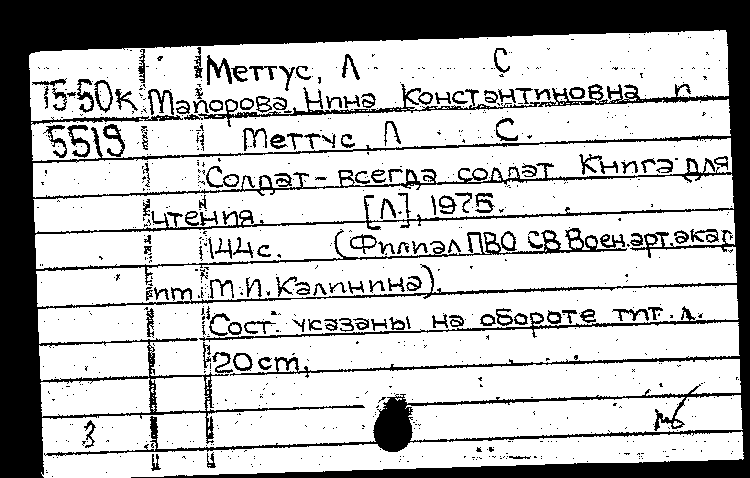 Меттус, Л С
Т5-50к Мапорова, Нина Константиновна п
5519 Меттус, Л С.
Солдат - всегда солдат Книга для
чтения. [Л.], 1975.
144с. (Филиал ПВО СВ Воен.арт.акад
им. М.И. Калинина).
Сост. указаны на обороте тит. л.
20 cm.
3